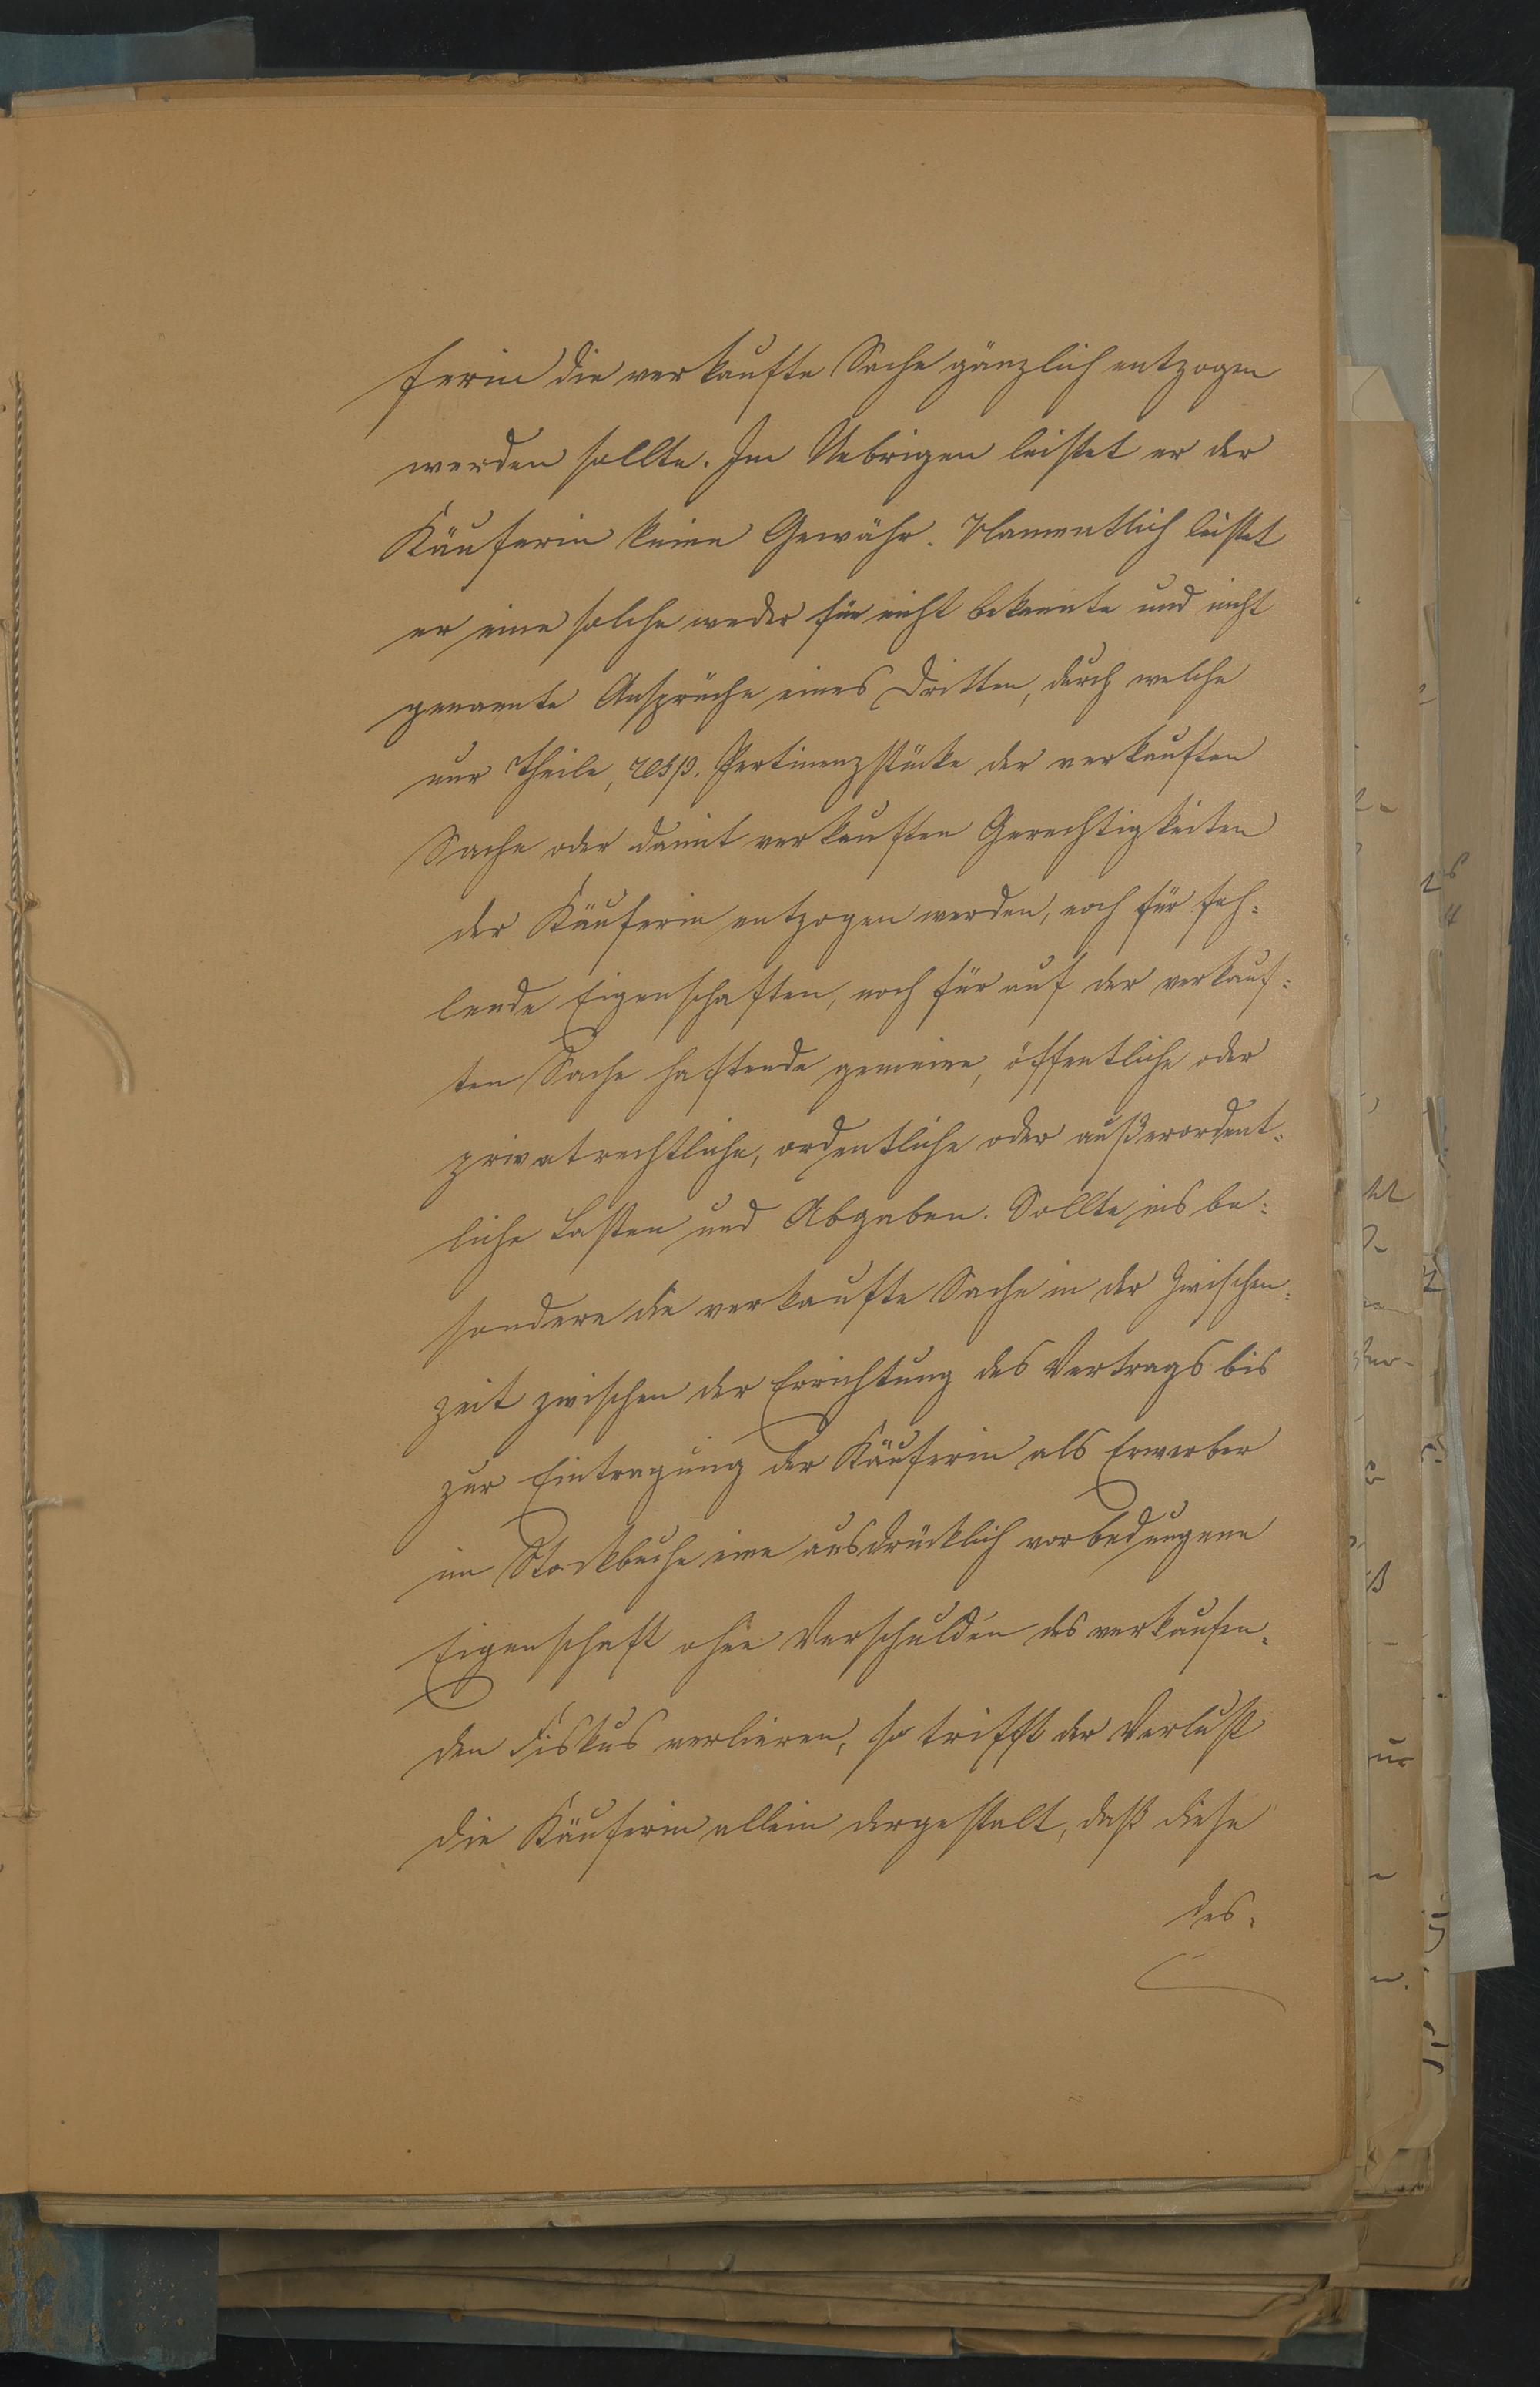 ferin die verkaufte Sache gänzlich entzogen
werden sollte. Im Uebrigen leistet er der
Käuferin keine Gewähr. Namentlich leistet
er eine solche weder für nicht bekannte und nicht
genannte Ansprüche eines Dritten, durch welche
nur Theile, resp. Pertinenzstücke der verkauften
Sache oder damit verkauften Gerechtigkeiten
der Käuferin entzogen werden, noch für feh-
lende Eigenschaften, noch für auf der verkauf-
ten Sache haftende gemeine, öffentliche oder
privatrechtliche, ordentliche oder außerordent-
liche Lasten und Abgaben. Sollte insbe-
sondere die verkaufte Sache in der Zwischen-
zeit zwischen der Errichtung des Vertrags bis
zur Eintragung der Käuferin als Erwerber
im Stockbuche eine ausdrücklich vorbedungene
Eigenschaft ohne Verschulden des verkaufen-
den Fiskus verlieren, so trifft der Verlust
die Käuferin allein dergestalt, daß diese
des-